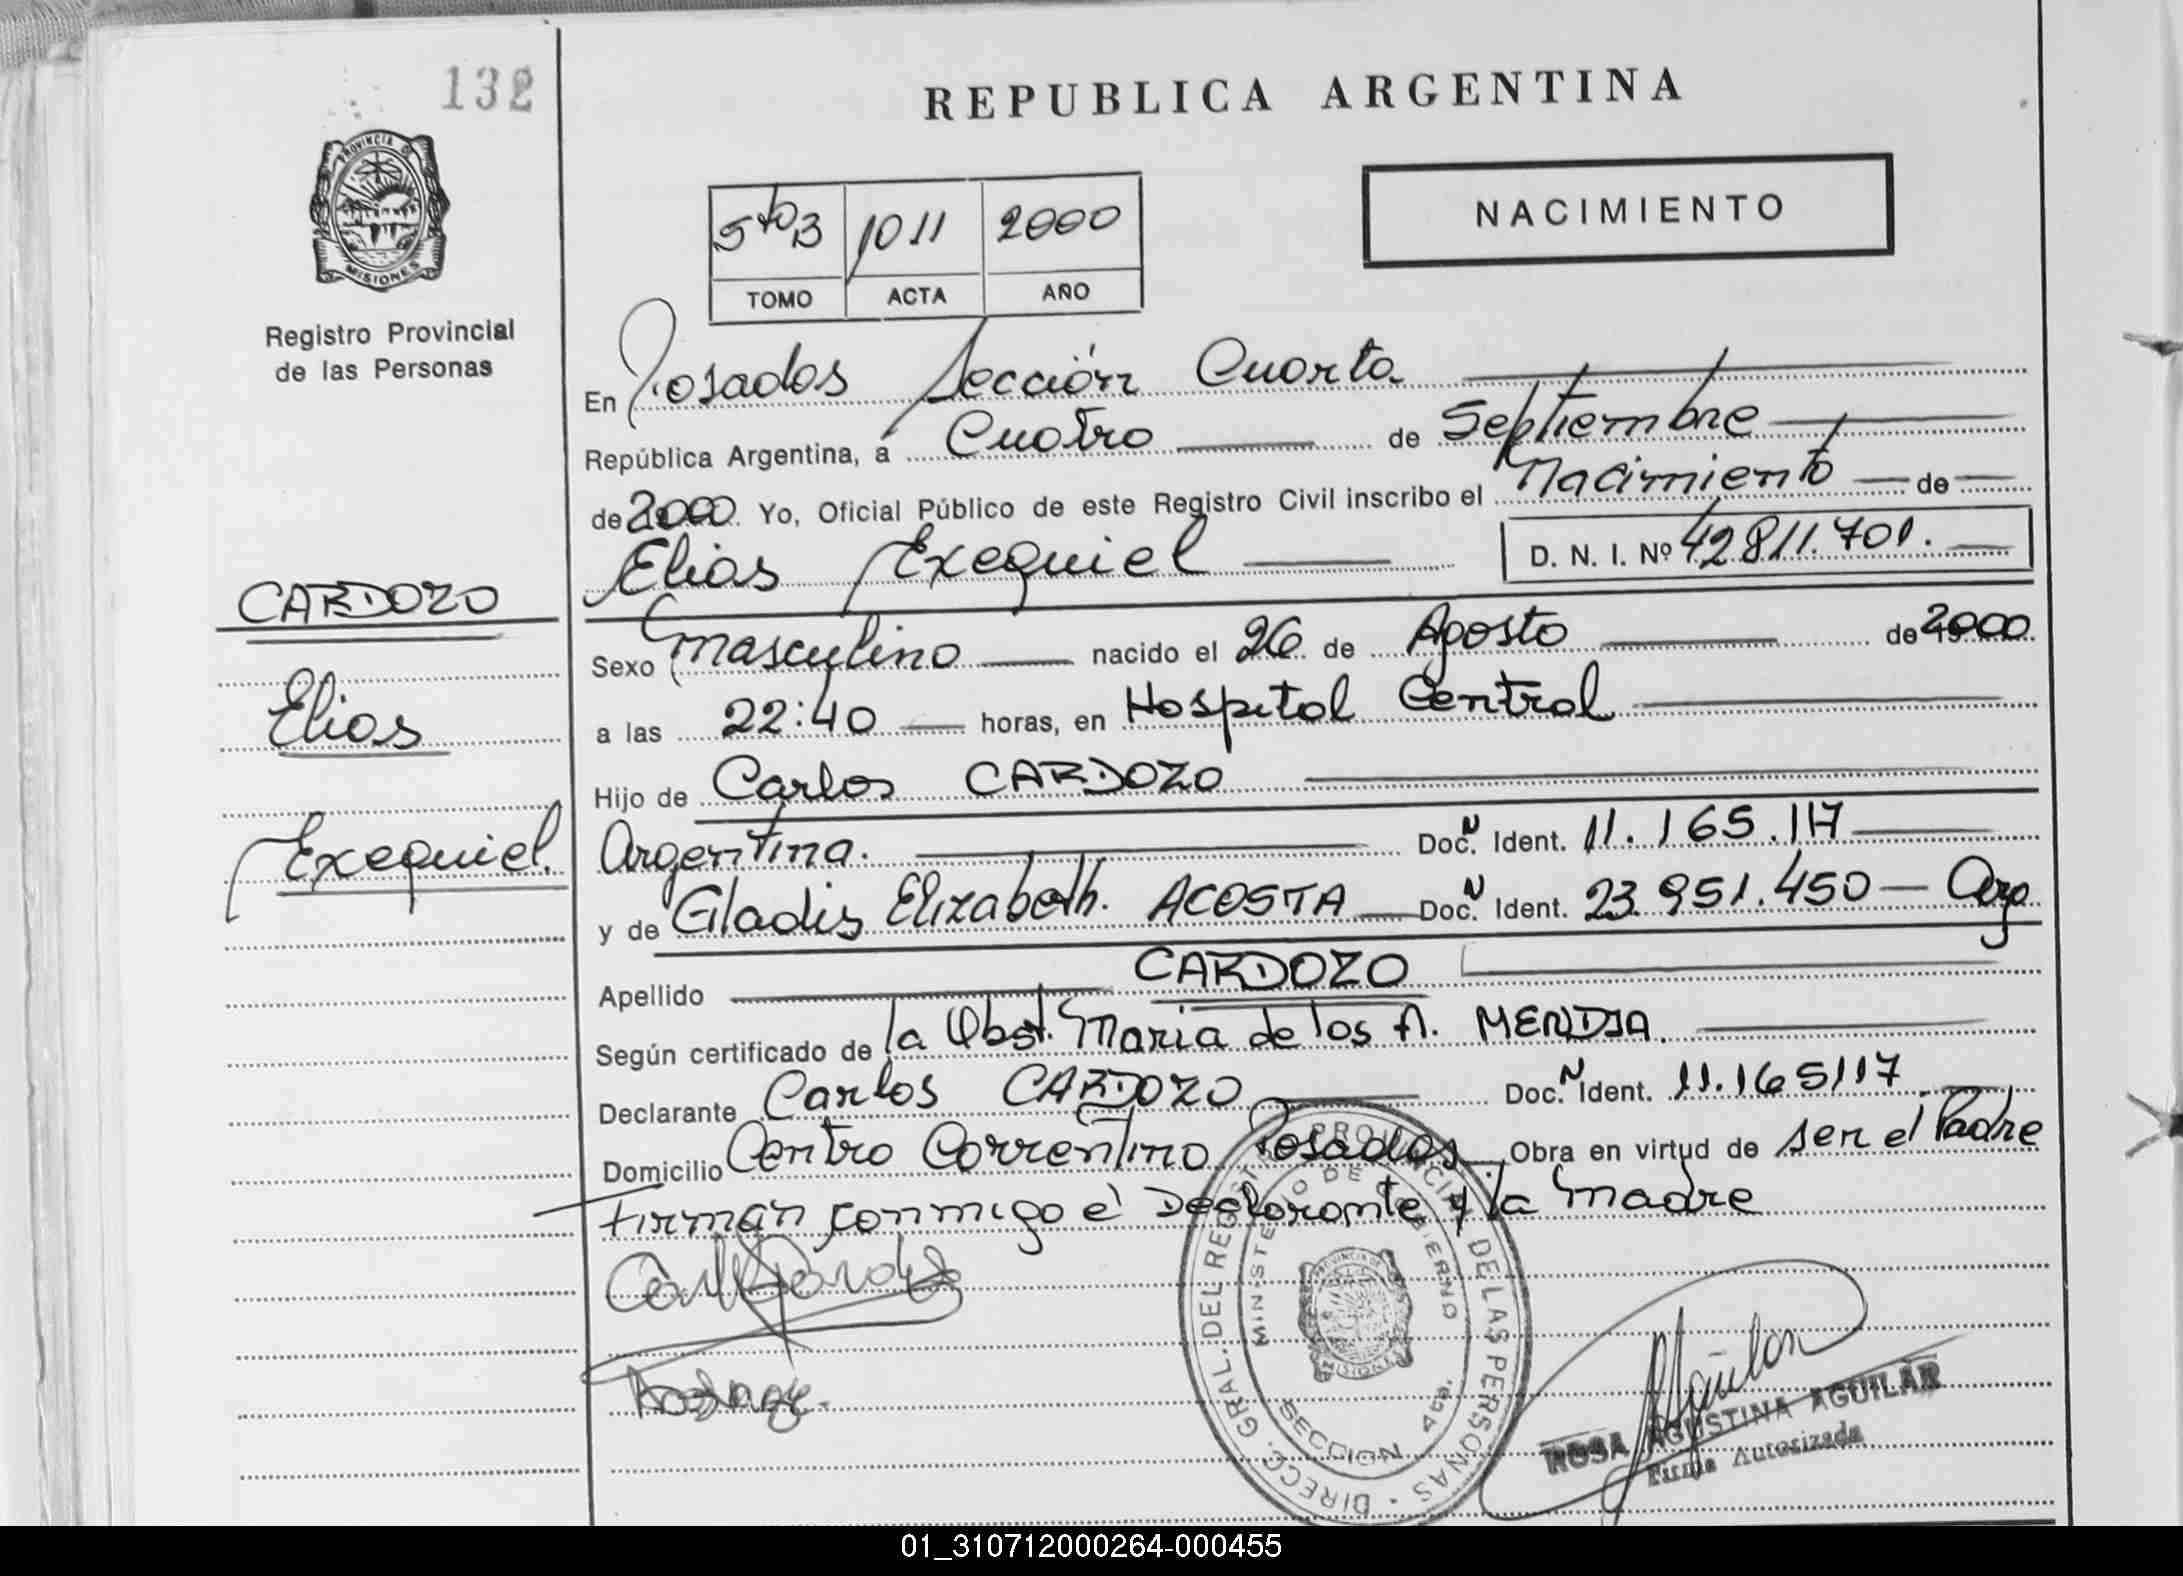 132
REPUBLICA ARGENTINA
PROVINCIA DE MISIONES
5to B 1011 2000
TOMO ACTA AÑO
NACIMIENTO
Registro Provincial
de las Personas
En Posadas Sección Cuarta
República Argentina, a Cuatro de Septiembre
de 2000 Yo, Oficial Público de este Registro Civil inscribo el Nacimiento de
Elias Exequiel D. N. I. Nº 42811.701.
CARDOZO
Elias
Exequiel.
Sexo Masculino nacido el 26 de Agosto de 2000
a las 22:40 horas, en Hospital Central
Hijo de Carlos CARDOZO
Argentina. Doc. N Ident. 11.165.117
y de Gladis Elizabeth. ACOSTA Doc. N Ident. 23.951.450 - Arg
Apellido CARDOZO
Según certificado de la Obst. Maria de los A. MENDIA.
Declarante Carlos CARDOZO Doc. N Ident. 11.165117
Domicilio Centro Correntino Posadas Obra en virtud de ser el Padre
Firman conmigo el Declarante y la Madre
DIRECC. GRAL. DEL REGIST PROVINCIAL DE LAS PERSONAS
MINISTERIO DE GOBIERNO
SECCION 4ta.
PROVINCIA DE MISIONES
Aguilar
ROSA AGUSTINA AGUILAR
Firma Autorizada
01_310712000264-000455